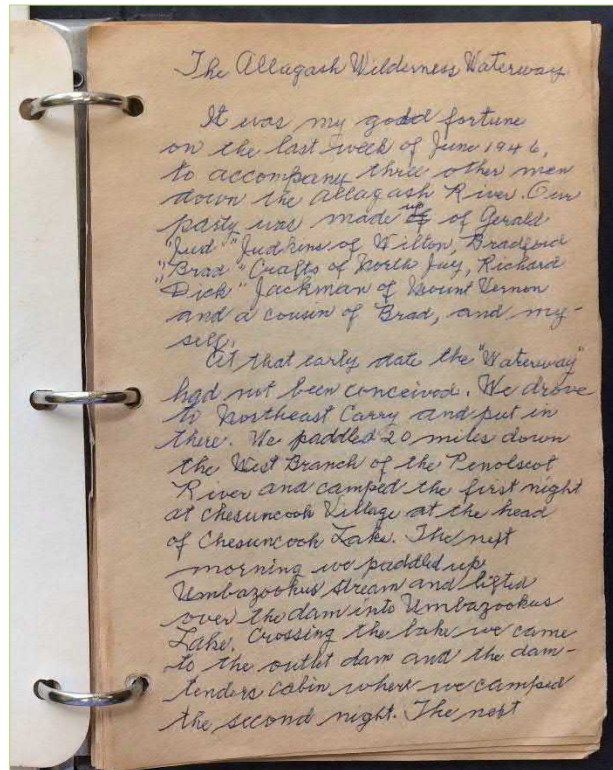 The Allagash Wilderness Waterway
It was my good fortune
on the last week of June 1946,
to accompany three other men
down the Allagash River. Our
party was made up of Gerald
"Jud" Judkins of Wilton, Bradford
"Brad" Crafts of North Jay, Richard
"Dick" Jackman of Mount Vernon
and a cousin of Brad, and my-
self.
At that early date the "Waterway"
had not been conceived. We drove
to Northeast Carry and put in
there. We paddled 20 miles down
the West Branch of the Penolscot
River and camped the first night
at Chesuncook Village at the head
of Chesuncook Lake. The next
morning we paddled up
Umbazookus Stream and lifted
over the dam into Umbazookus
Lake. Crossing the lake we came
to the outlet dam and the dam-
tenders cabin where we camped
the second night. The next